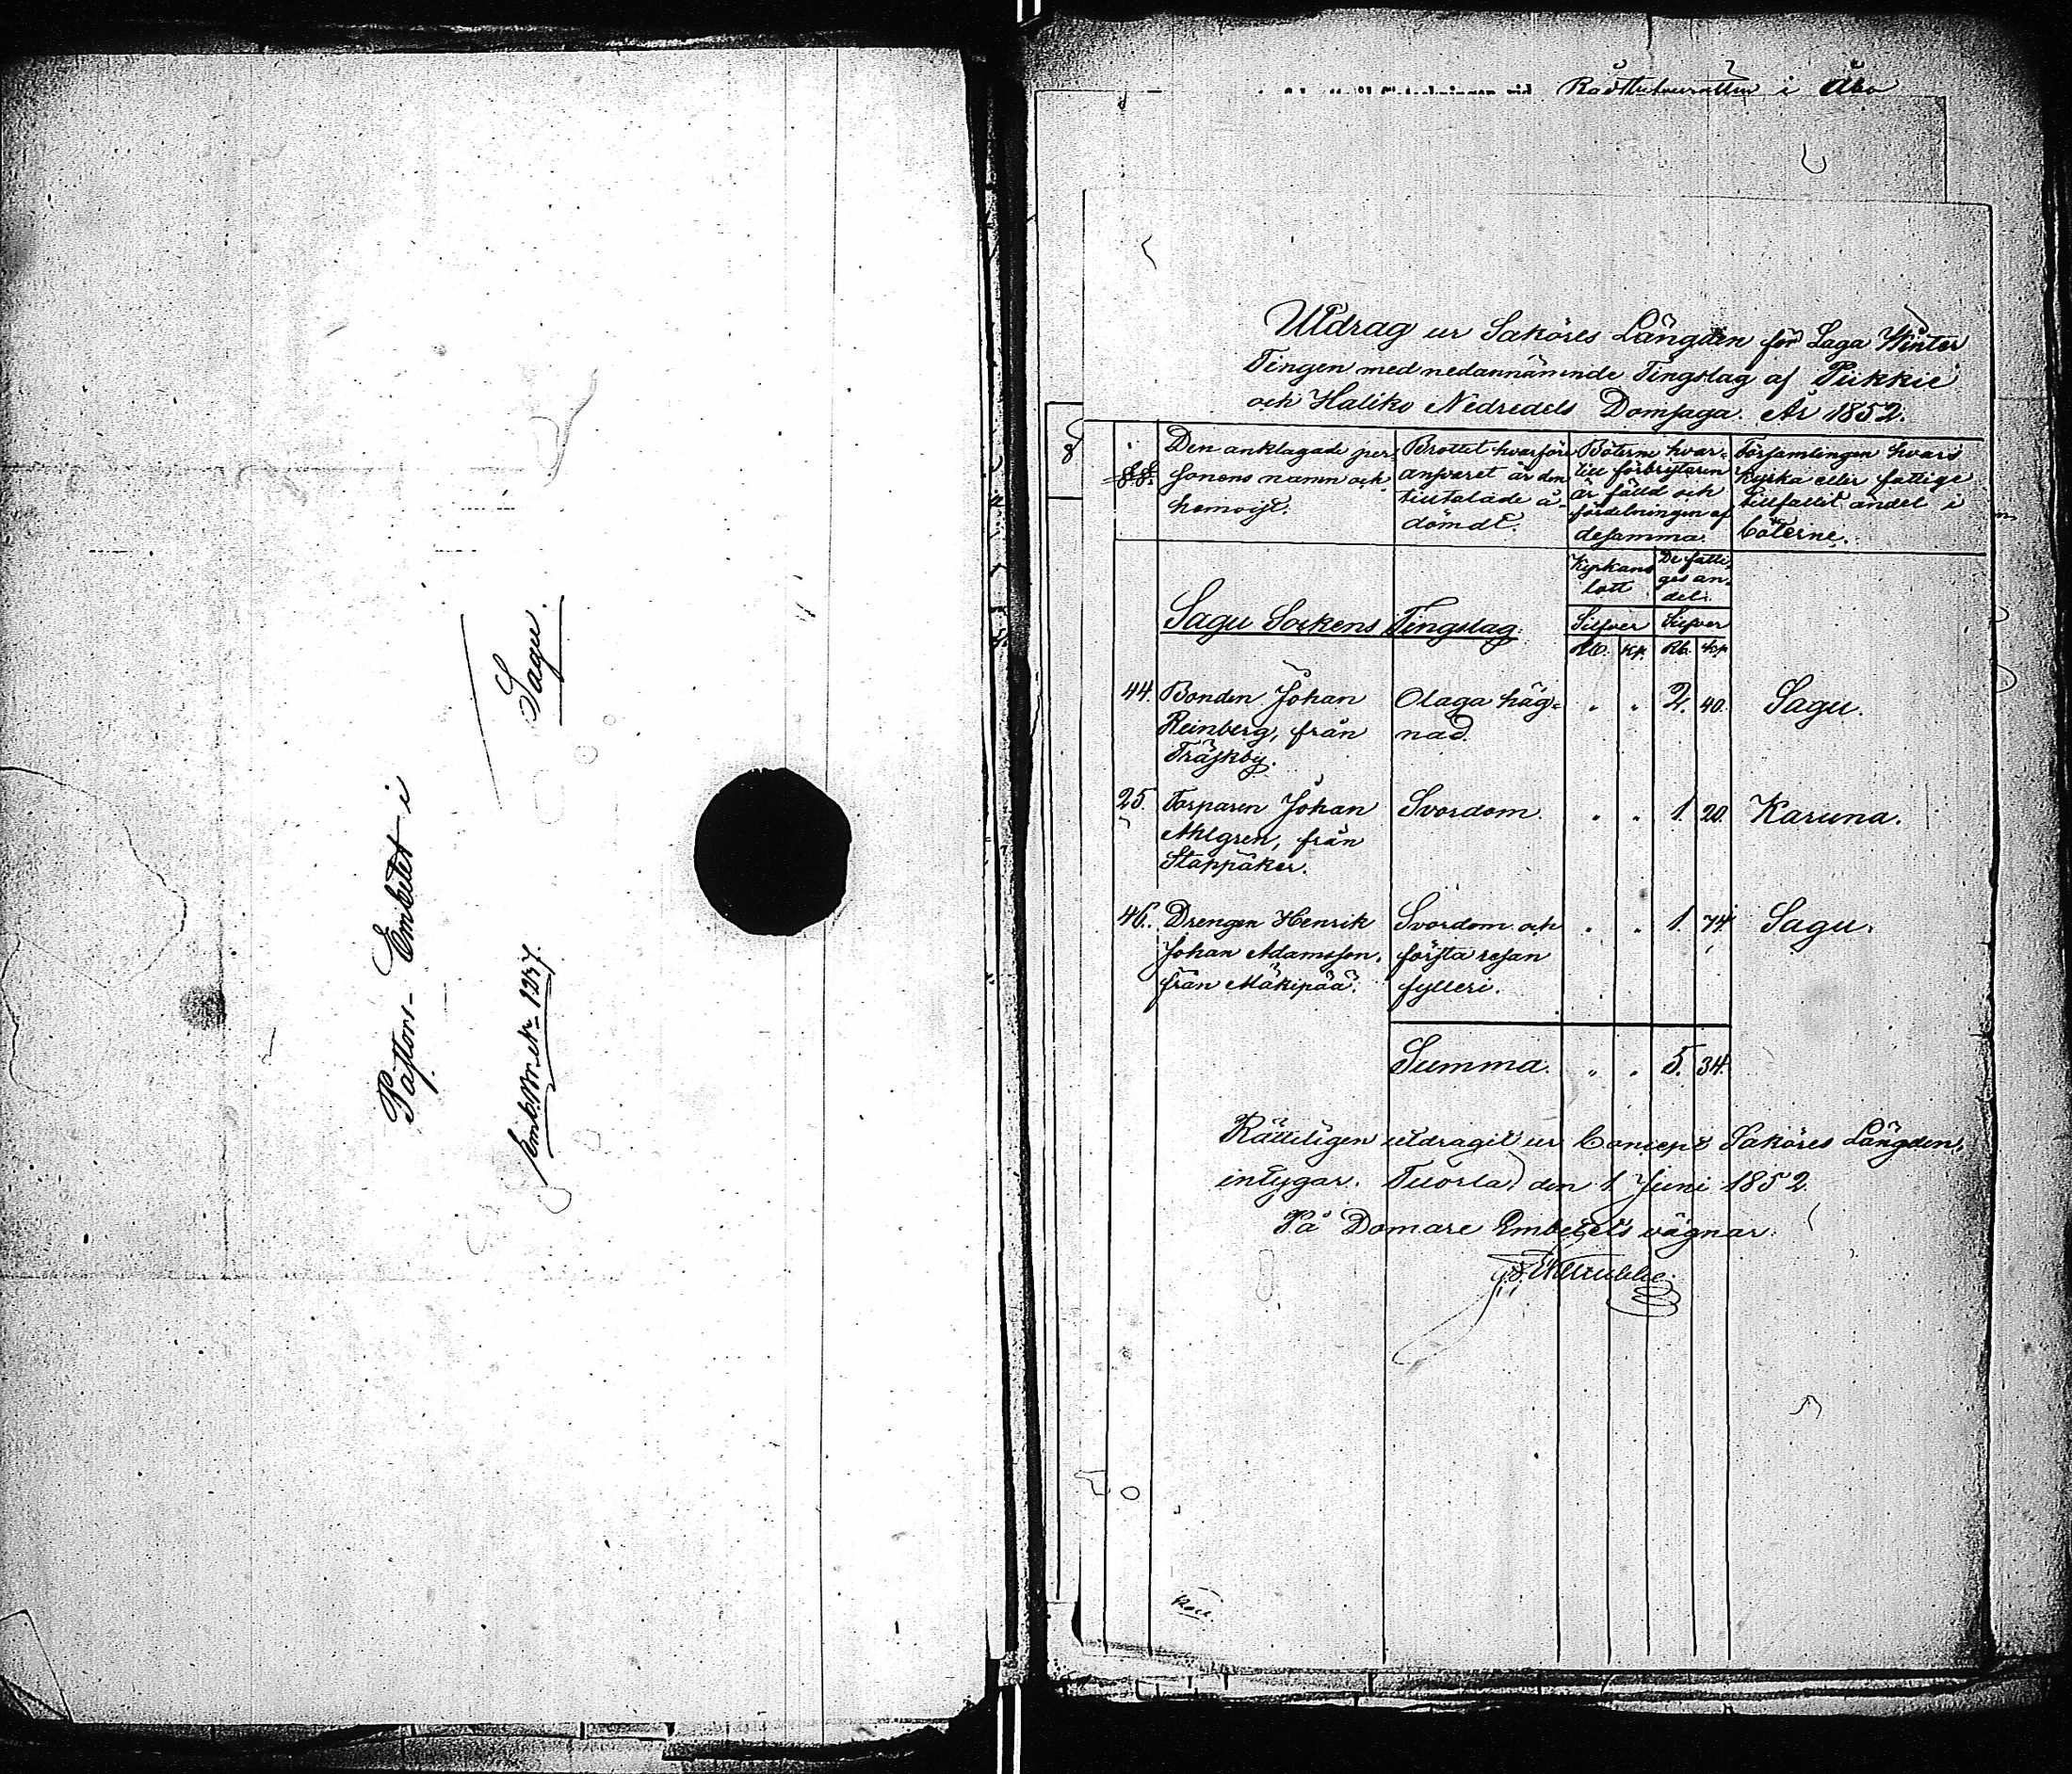 Pastors-Embetet i
Sagu.
Emb. Br. N:o 1237.
Rådstufvurätten i Åbo
Utdrag ur Saköres Längden för Laga Winter
Tingen med nedannämnde Tingslag af Piikkie
och Haliko Nedredels Domsaga. År 1852.
§§. Den anklagade personens namn och hemvist.
Brottet hvarföre ansvaret är den tilltalade ådömdt.
Böterne hvartill förbrytaren är fälld och fördelningen af desamma.
Församlingen hvars Kyrka eller fattige tillfallit andel i böterne.
Kyrkans lott
De fattiges andel.
Sagu Sockens Tingslag.
Silfver Silfver
Rb. Kp. Rb. Kp.
44. Bonden Johan Olaga häg- " " 2. 40. Sagu.
Reinberg, från nad.
Träskby.
25. Torparen Johan Svordom. " " 1. 20. Karuna.
Ahlgren, från
Stappåker.
46. Drengen Henrik Svordom och " " 1. 74. Sagu.
Johan Adamsson, första resan
från Mäkipää. fylleri.
Summa. " " 5. 34.
Rätteligen utdragit ur Concept Saköres Längden,
intygar. Tuorla, den 1 Juni 1852.
På Domare Embetets vägnar.